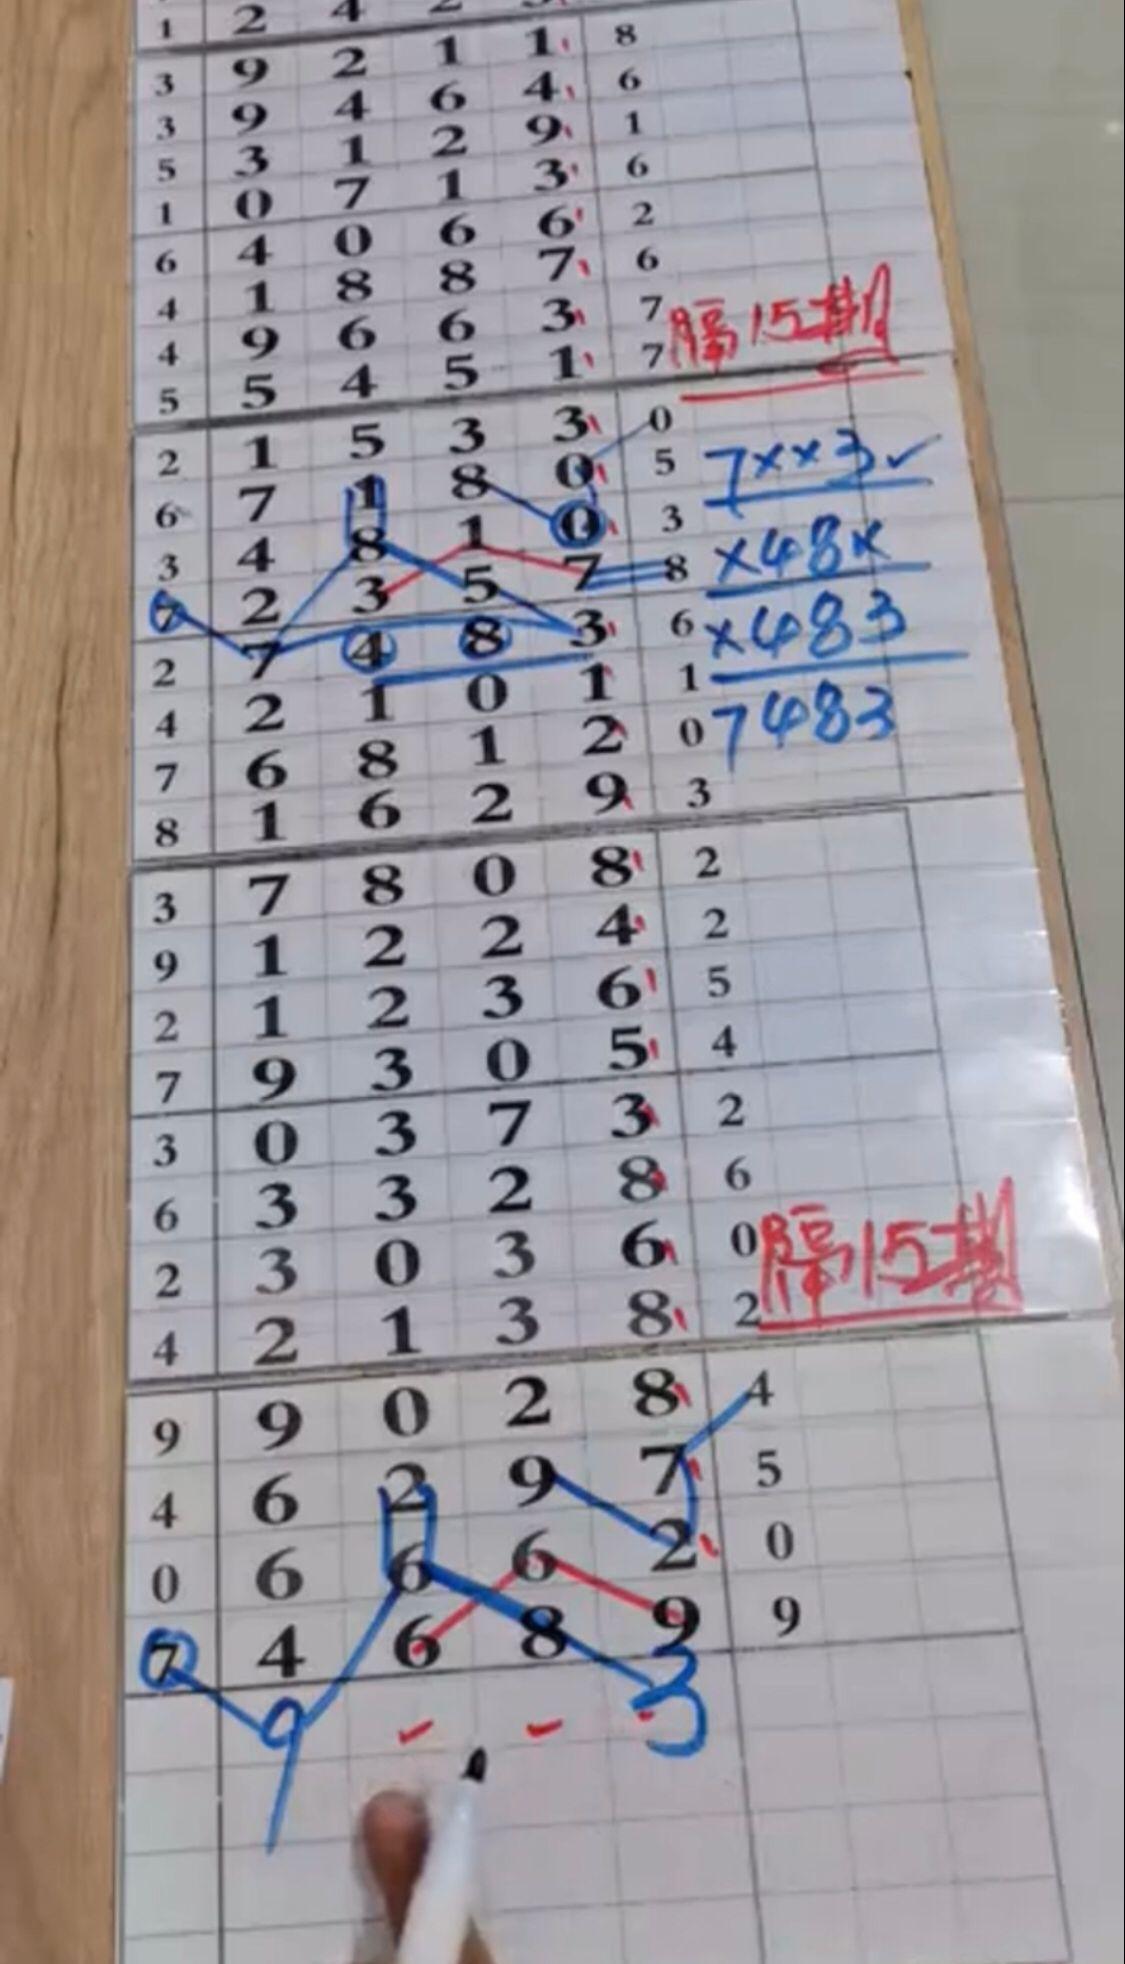 1 2 4 2
3 9 2 1 1 8
3 9 4 6 4 6
5 3 1 2 9 1
1 0 7 1 3 6
6 4 0 6 6 2
4 1 8 8 7 6
4 9 6 6 3 7
5 5 4 5 1 7 隔15期
2 1 5 3 3 0
6 7 1 8 0 5 7××3✓
3 4 8 1 0 3
7 2 3 5 7 8 ×48×
2 7 4 8 3 6 ×483
4 2 1 0 1 1
7 6 8 1 2 0 7483
8 1 6 2 9 3
3 7 8 0 8 2
9 1 2 2 4 2
2 1 2 3 6 5
7 9 3 0 5 4
3 0 3 7 3 2
6 3 3 2 8 6
2 3 0 3 6 0 隔15期
4 2 1 3 8 2
9 9 0 2 8 4
4 6 2 9 7 5
0 6 6 6 2 0
7 4 6 8 9 9
9 3